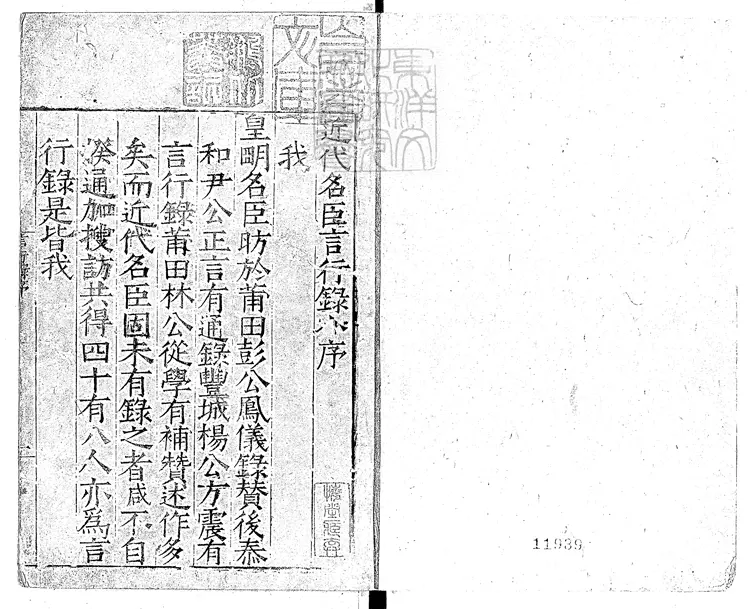 近代名臣言行錄序
我
皇明名臣昉於莆田彭公鳳儀錄賛後泰
和尹公正言有通錄豐城楊公方震有
言行錄莆田林公從學有補贊述作多
矣而近代名臣固未有錄之者咸不自
揆通加搜訪共得四十有八人亦爲言
行錄是皆我
11939